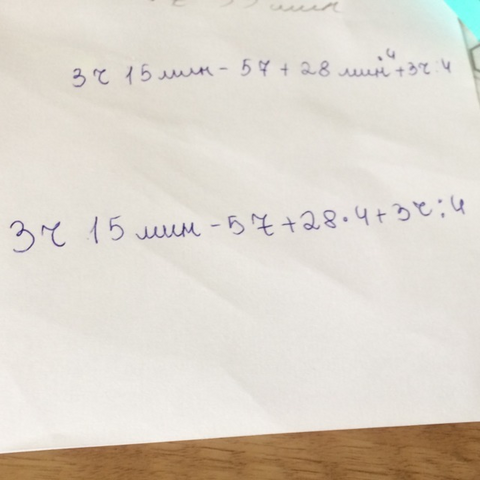 мин
3ч 15 мин - 57 + 28 мин·4 + 3ч : 4
3ч 15 мин - 57 + 28·4 + 3ч : 4